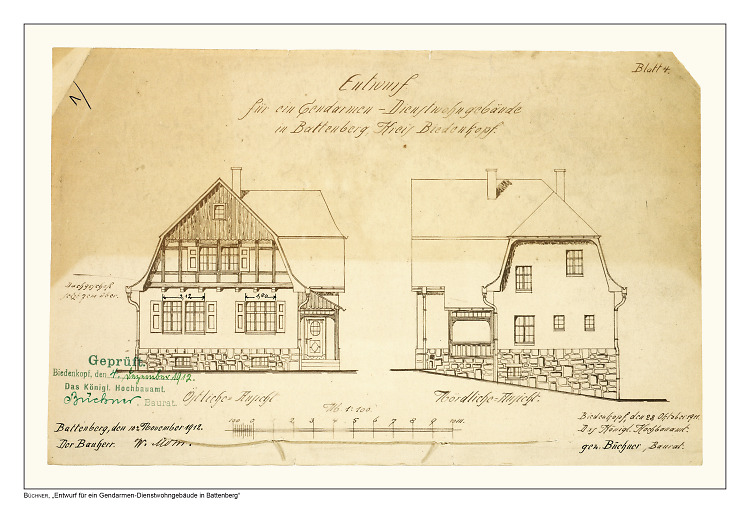 Blatt 4.
Entwurf
für ein Gendarmen-Dienstwohngebäude
in Battenberg, Kreis Biedenkopf.
2,12
1,00
Geprüft
Biedenkopf, den 1912.
Das Königl. Hochbauamt.
Büchner, Baurat.
Östliche-Ansicht
Nördliche-Ansicht.
M. 1:100.
100 0 1 2 3 4 5 6 7 8 9 10 m.
Battenberg, den 10. November 1912.
Der Bauherr.
Biedenkopf, den 28. Oktober 1911.
Das Königl. Hochbauamt.
gez. Büchner, Baurat.
BÜCHNER, „Entwurf für ein Gendarmen-Dienstwohngebäude in Battenberg“